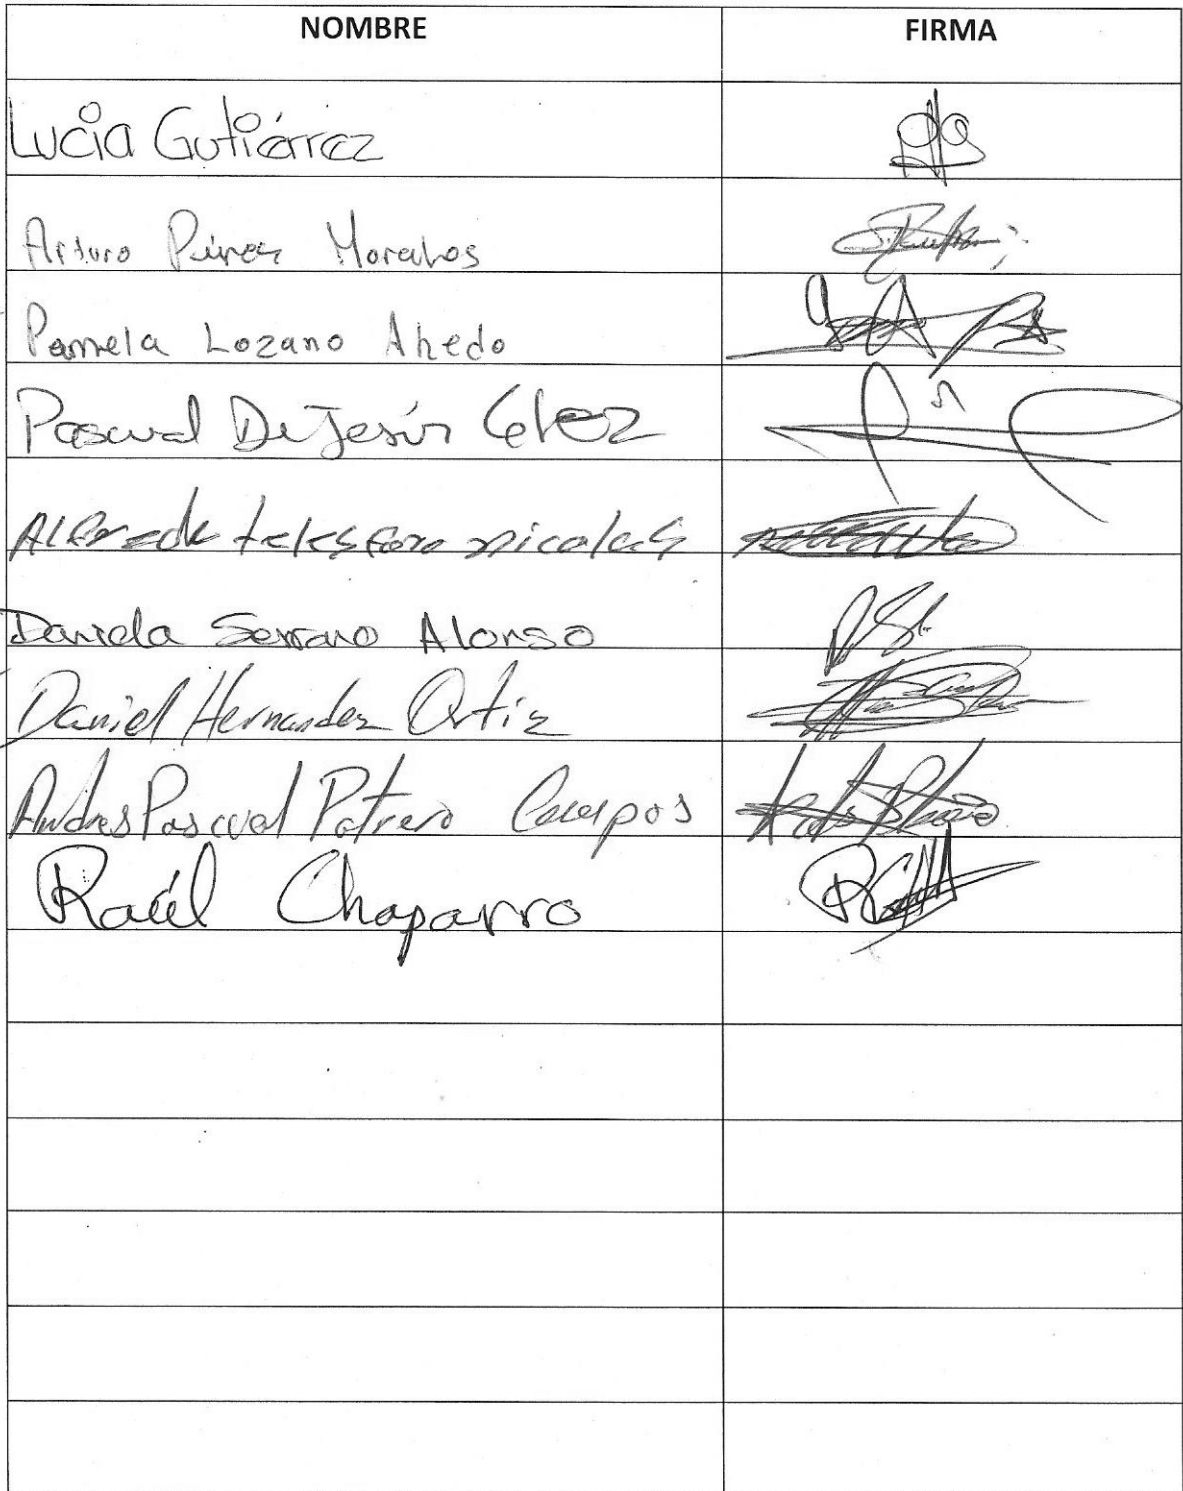 NOMBRE FIRMA
Lucía Gutiérrez
Arturo Pérez Morales
Pamela Lozano Ahedo
Pascual De Jesús
Alfredo telesforo nicolas
Daniela Serrano Alonso
Daniel Hernandez Ortiz
Andres Pascual Potrero Campos
Raúl Chaparro